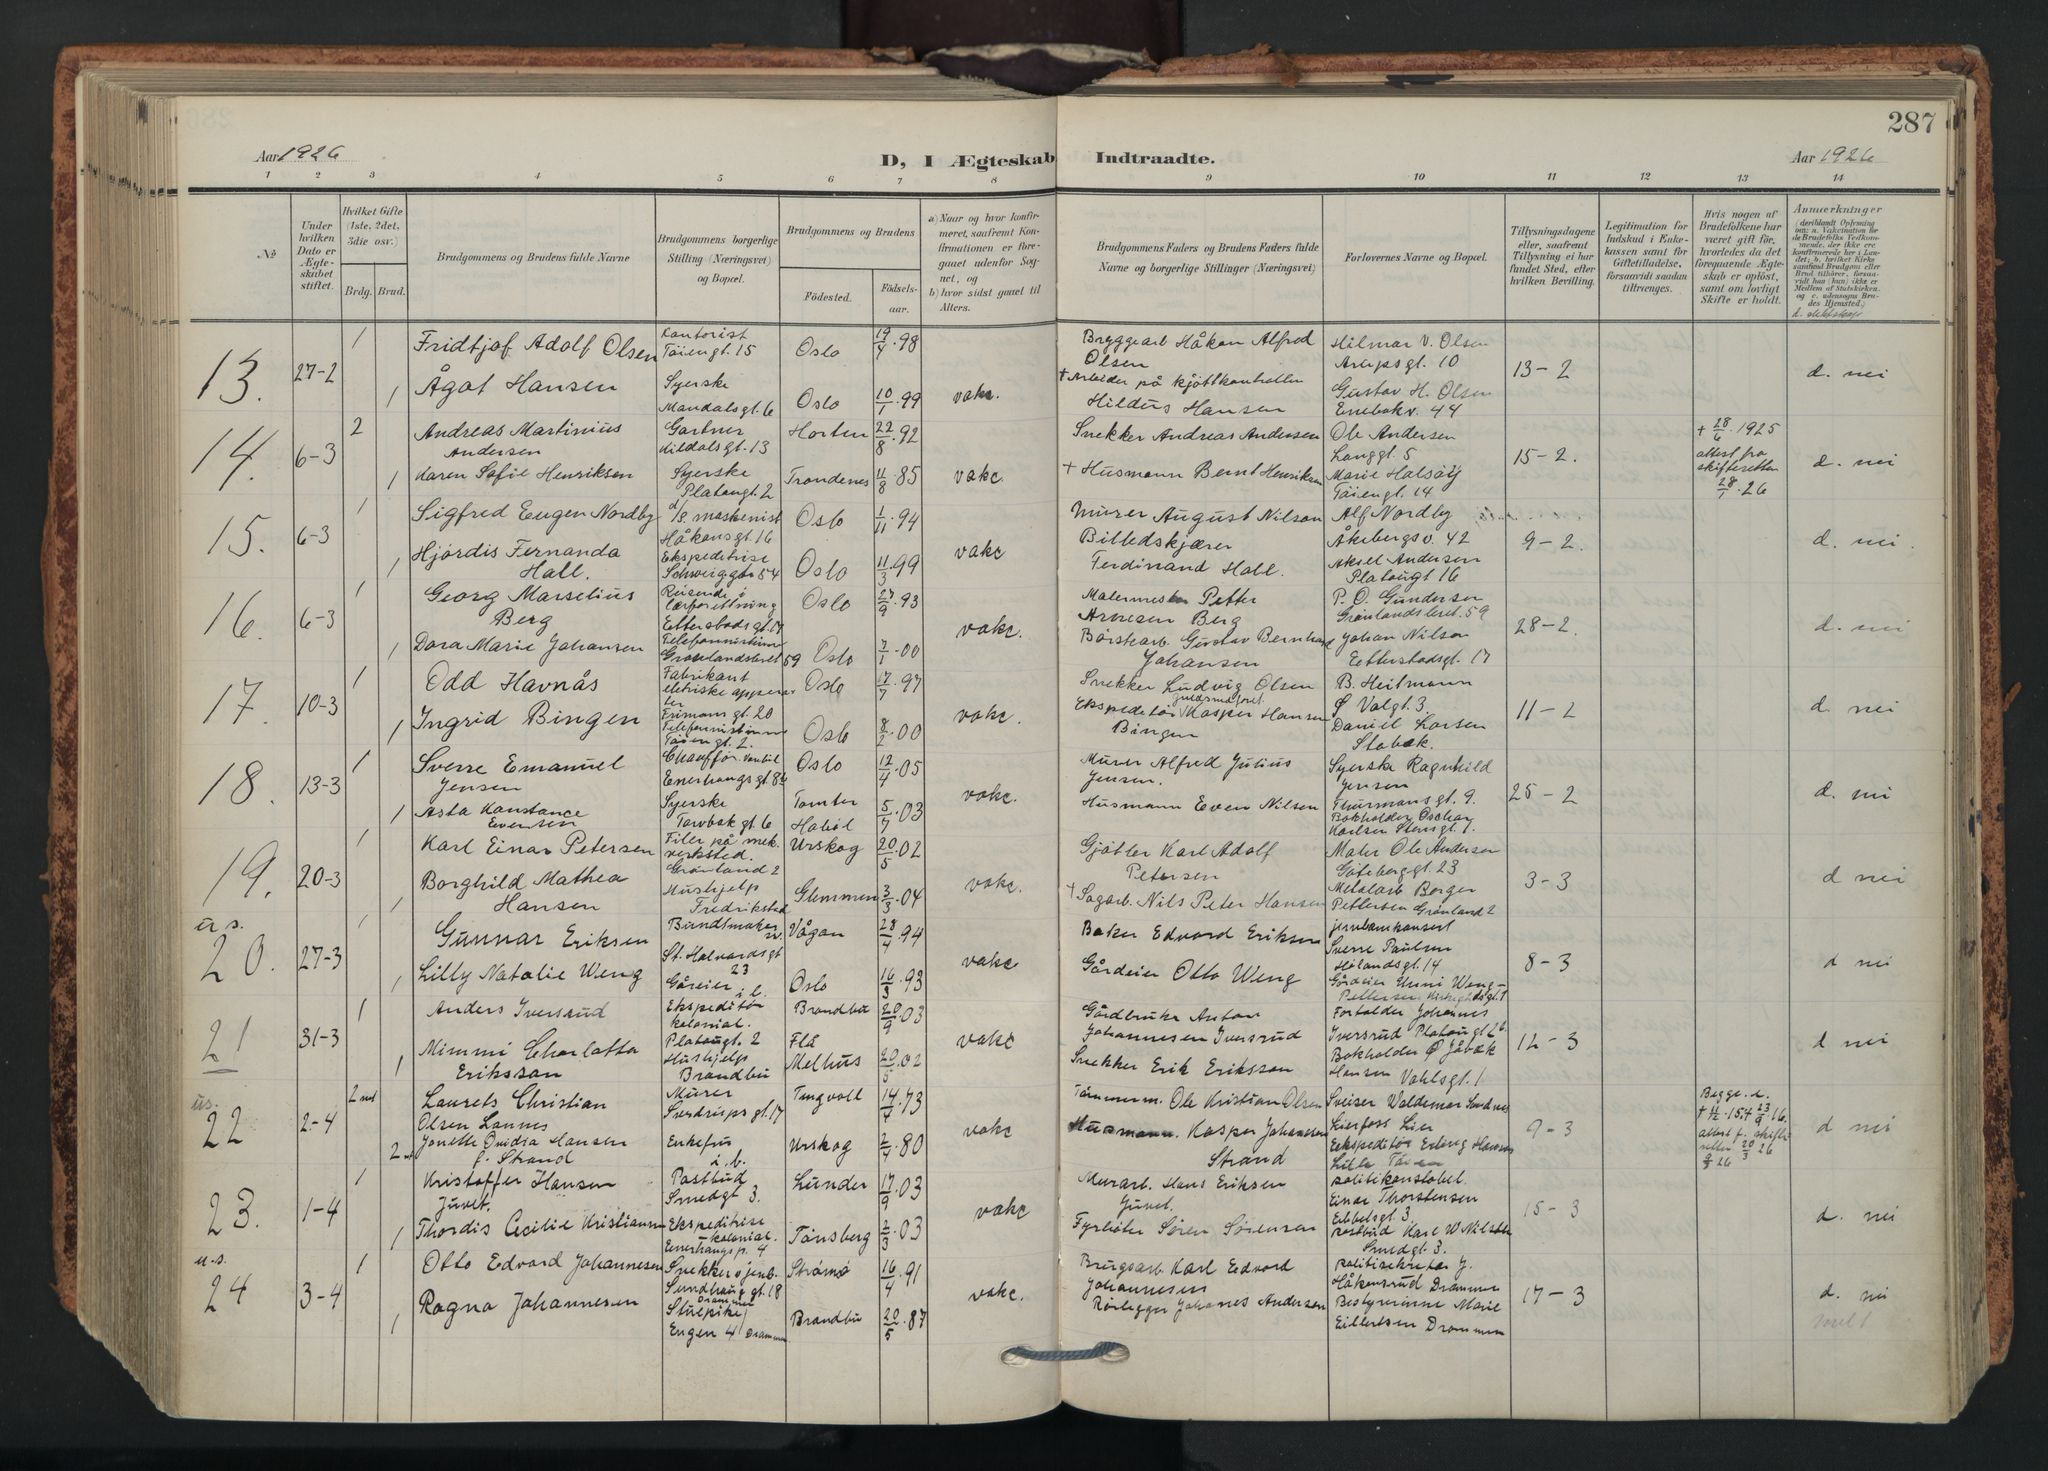 287
Aar 1926
D, I Ægteskab Indtraadte.
Aar 1926
1 2 3 4 5 6 7 8 9 10 11 12 13 14
№
Under hvilken Dato er Ægteskabet stiftet.
Hvilket Gifte (1ste, 2det, 3die osv.)
Brdg. Brud.
Brudgommens og Brudens fulde Navne
Brudgommens borgerlige Stilling (Næringsvei) og Bopæl.
Brudgommens og Brudens
Födested. Födsels-aar.
a) Naar og hvor konfirmeret, saafremt Konfirmationen er foregaaet udenfor Sognet, og
b) hvor sidst gaaet til Alters.
Brudgommens Faders og Brudens Faders fulde Navne og borgerlige Stillinger (Næringsvei)
Forlovernes Navne og Bopæl.
Tillysningsdagene eller, saafremt Tillysning ei har fundet Sted, efter hvilken Bevilling.
Legitimation for Indskud i Enkekassen samt for Giftetilladelse, forsaavidt saadan tiltrænges.
Hvis nogen af Brudefolkene har været gift för, hvorledes da det foregaaende Ægteskab er oplöst, samt om lovligt Skifte er holdt.
Anmærkninger
13. 27-2 1 Fridtjof Adolf Olsen Kontorist Töiengt. 15 Oslo 19/4.98 Bryggearb Håkon Alfred Olsen Hilmar V. Olsen Arupsgt. 10 13-2 d. nei
1 Ågot Hansen Syerske Mandalsgt. 6 Oslo 10/1.99 vakc. + Arbeider på kjöttkontrollen Hildus Hansen Gustav H. Olsen Enebakv. 44
14. 6-3 2 Andreas Martinius Andersen Gartner Kildalsgt. 13 Horten 22/8.92 Snekker Andreas Andersen Ole Andersen Langgt. 5 15-2. + 28/6.1925 attest fra skifteretten 28/1.26 d. nei
1 Karen Sofie Henriksen Syerske Platougt. 2 Trondenes 11/8.85 vakc. + Husmann Bernt Henriksen Marie Halsöy Töiengt. 14
15. 6-3 1 Sigfred Eugen Nordby d/s. maskinist Håkonsgt. 16 Oslo 1/11.94 Murer August Nilson Alf Nordby Åkebergsv. 42 9-2. d. nei.
1 Hjördis Fernanda Hall. Ekspeditrise Schweiggtr 54 Oslo 11/3.99 vakc Billedskjærer Ferdinand Hall. Aksel Andersen Platougt 16
16. 6-3 1 Georg Marselius Berg Reisende i lærforettning Ettersbadsgt. 17 Oslo 27/9.93 Malermester Petter Arnesen Berg P. O. Gundersen Grönlandsleret. 59 28-2. d. nei
1 Dora Marie Johansen Telefonnistinne Grönlandsleret 59 Oslo 7/1.00 vakc. Börstearb. Gustav Bernhard Johansen Johan Nilsen Eetterstadsgt. 17
17. 10-3 1 Odd Havnås Fabrikant eletriske apparater Frimans gt. 20 Oslo 17/7.97 Snekker Ludvig Olsen B. Heitmann Ø Valgt 3. 11-2 d. nei
1 Ingrid Bingen Telefonnistinne Töiengt. 2. Oslo 8/2.00 vakc. Ekspeditör Kasper Hansen Bingen Daniel Larsen Stabæk.
18. 13-3 1 Sverre Emanuel Jensen Chafför Enerhaugsgt 84 Oslo 12/4.05 Murer Alfred Julius Jensen. Syerske Ragnhild Jensen Thurmansgt. 9. 25-2 d. nei
1 Asta Konstance Evensen Syerske Torvbakgt. 6 Tomter Haböl 5/7.03 vakc. Husmann Even Nilsen Bokholder Oschar Karlsen Stensgt. 1.
19. 20-3 1 Karl Einar Petersen Filer på mek. verksted. Grönland 2 Urskog 20/5.02 Gjötler Karl Adolf Petersen Maler Ole Andersen Göteborggt 23 3-3 d nei
1 Borghild Mathea Hansen Hushjelp Fredrikstad Glemmen 3/3.04 vakc. + Sagarb. Nils Peter Hansen Metalarb Borger Pettersen Grönland 2
u. s.
20. 27-3 1 Gunnar Eriksen Bundtmaker St. Halvardsgt 23 Vågan 28/4.94 Baker Edvard Eriksen Sverre Paulsen Hölandsgt. 14 8-3 d nei
1 Lilly Natalie Weng Gåreier i. b. Oslo 16/3.93 vakc Gårdeier Otto Weng Gårdeier Unni Weng-Pettersen
21 31-3 1 Anders Iversrud Ekspeditör kolonial. Platougt. 2 Brandbu 20/9.03 Gårdbruker Anton Johannesen Iversrud Forvalder Johannes Iversrud Platougt 26 12-3 d nei
1 Mimmi Charlotta Eriksson Hushjelp Brandbu Flå Melhus 20/5.02 vakc Snekker Erik Eriksson Bokholder Ø Jåbæk Hansen Vahlsgt. 1
us.
22 2-4 2 Laurets Christian Olsen Lannes Murer Sverdrupsgt. 17 Tingvoll 14/4.73 Tömmerm. Ole Kristian Olsen Sveiser Waldemar Sandnes Lierfoss Lier 9-3 Begge d. d nei
2 Jonette Ovidia Hansen f. Strand Enkefru i. b. Urskog 2/4.80 vakc Husmann. Kasper Johannesen Strand Ekspeditör Erling Hansen Lille Töien
23. 1-4 1 Kristoffer Hansen Juvet. Postbud Smedgt 3. Lunder 17/9.03 Murarb. Hans Eriksen Juvet. politikonstabel Einar Thorstensen Eibbelsgt. 3. 15-3 d. nei
1 Thordis Cecilie Kristiansen Ekspeditrise kolonial. Enerhaugsp. 4 Tönsberg 2/3.03 vakc Fyrböter Sören Sörensen postbud Karl W Nilsen Smedgt. 3.
u. s.
24 3-4 1 Otto Edvard Johannesen Snekker Sundhaug gt. 18 Drammen Strömsö 16/4.91 Brugsarb Karl Edvard Johannesen politisekretær J. Håkensrud Drammen 17-3 d. nei
1 Ragna Johannesen Stuepike Engen 4 Drammen Brandbu 20/5.87 vakc. Rörlegger Johanes Andersen Bestyrerinne Marie Eilertsen Drammen